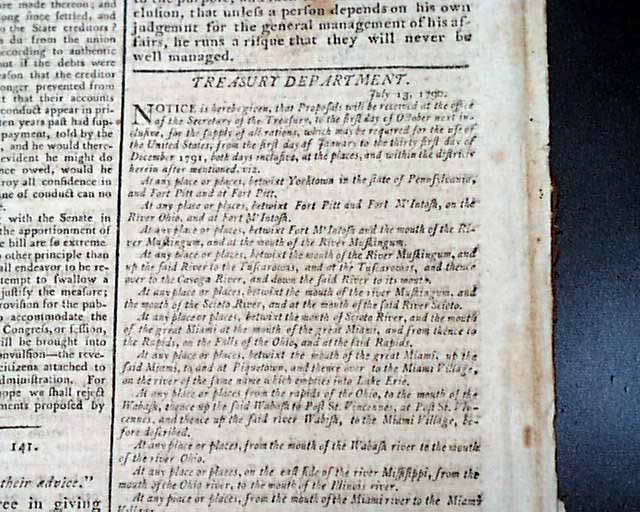 are made thereon; and
long since settled, and
to the State creditors?
s du from the union
according to authentic
but if the debts were
eason that the creditor
longer prevented from
t that their accounts
conduct appear in pri-
ten years past had sup-
payment, told by the
, and he would there-
evident he might do
nce owed, would he
roy all confidence in
ne of conduct can no
e.
with the Senate in
the apportionment of
e bill are so extreme
o other principle than
all endeavor to be re-
ttempt to swallow a
justify the measure;
rovision for the pub-
o accommodate the
Congress, or session,
will be brought into
onvulsion—the reve-
citizens attached to
dministration. For
hope we shall reject
ments proposed by
141.
their advice."
ree in giving
clusion, that unless a person depends on his own
judgmnt for the general management of his af-
fairs, he runs a risque that they will never be
well managed.
TREASURY DEPARTMENT.
July 13, 1790.
NOTICE is hereby given, that Proposals will be received at the office
of the Secretary of the Treasury, to the first day of October next in-
clusive, for the supply of all rations, which may be required for the use of
the United States, from the first day of January to the thirty first day of
December 1791, both days inclusive, at the places, and within the districts
herein after mentioned. viz.
At any place or places, betwixt Yorktown in the state of Pennsylvania,
and Fort Pitt and at Fort Pitt.
At any place or places, betwixt Fort Pitt and Fort M'Intosh, on the
River Ohio, and at Fort M'Intosh.
At any place or places, betwixt Fort M'Intosh and the mouth of the Ri-
ver Muskingum, and at the mouth of the River Muskingum.
At any place or places, betwixt the mouth of the River Muskingum, and
up the said River to the Tuscarowas, and at the Tuscarowas, and thence
over to the Cayoga River, and down the said River to its mouth.
At any place or places, betwixt the mouth of the river Muskingum, and
the mouth of the Scioto River, and at the mouth of the said River Scioto.
At any place or places, betwixt the mouth of Scioto River, and the mouth
of the great Miami at the mouth of the great Miami, and from thence to
the Rapids, on the Falls of the Ohio, and at the said Rapids.
At any place or places, betwixt the mouth of the great Miami, up the
said Miami, to and at Piquetown, and thence over to the Miami Village,
on the river of the same name which empties into Lake Erie.
At any place or places from the rapids of the Ohio, to the mouth of the
Wabash, thence up the said Wabash to Post St. Vincennes, at Post St. Vin-
cennes, and thence up the said river Wabash, to the Miami Village, be-
fore described.
At any place or places, from the mouth of the Wabash river to the mouth
of the river Ohio.
At any place or places, on the east side of the river Mississippi, from the
mouth of the Ohio river, to the mouth of the Illinois river.
At any place or places, from the mouth of the Miami river to the Miami
Village.